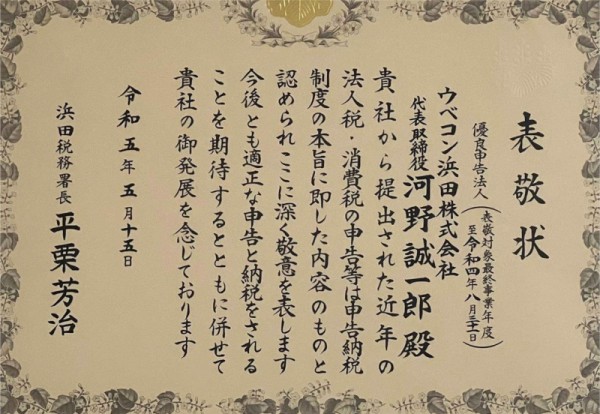 表敬状
優良申告法人
（表敬対象最終事業年度
至令和四年八月三十一日）
ウベコン浜田株式会社
代表取締役 河野誠一郎 殿
貴社から提出された近年の
法人税・消費税の申告等は申告納税
制度の本旨に即した内容のものと
認められここに深く敬意を表します
今後とも適正な申告と納税をされる
ことを期待するとともに併せて
貴社の御発展を念じております
令和五年五月十五日
浜田税務署長 平栗芳治